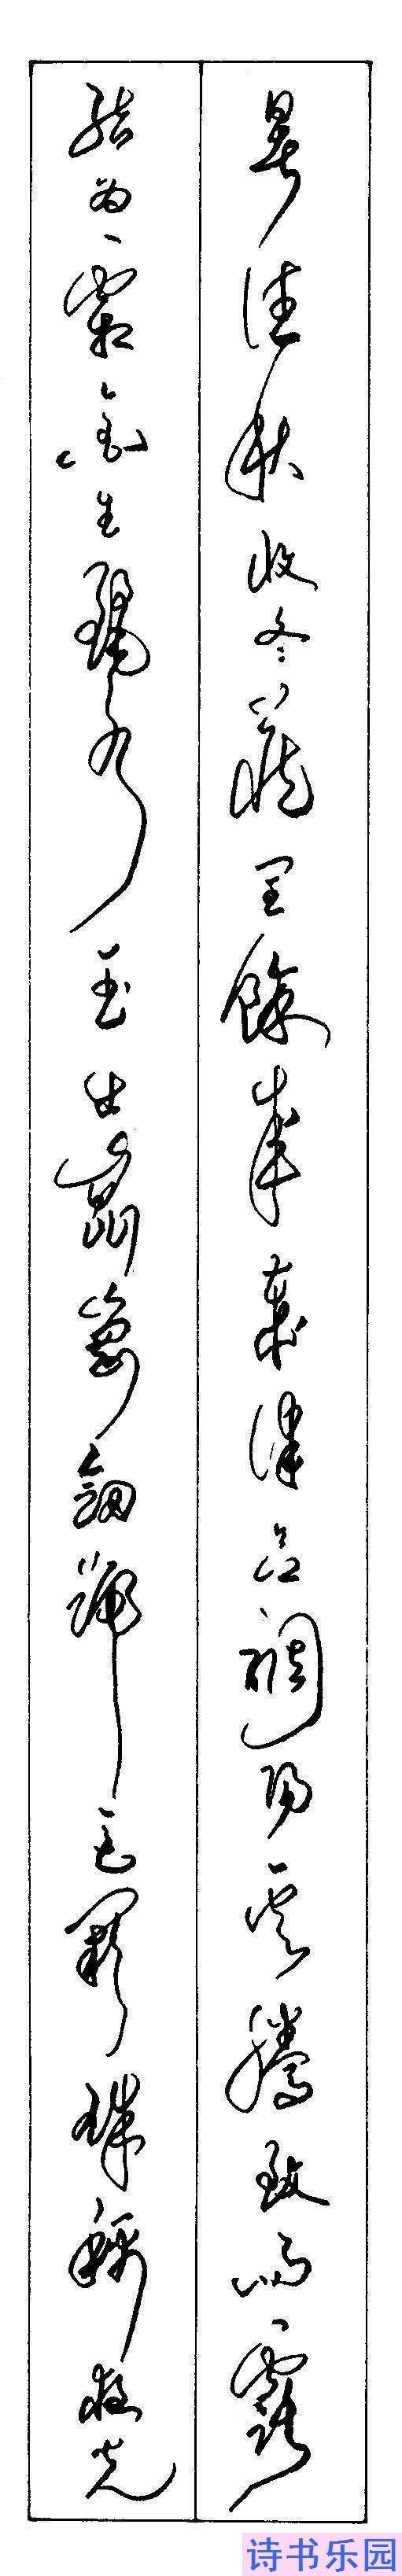 暑往秋收冬藏闰馀成岁律吕调阳云腾致雨露
结为霜金生丽水玉出昆冈剑号巨阙珠称夜光
诗书乐园